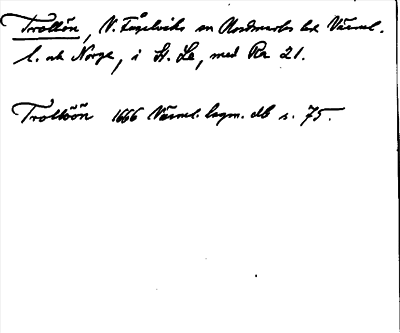 Trollön, N. Fågelviks sn Nordmarks hd Värml.
l. och Norge, i St. Le, med Rr 21.
Trollöön 1666 Värml. lagm. db s. 75.